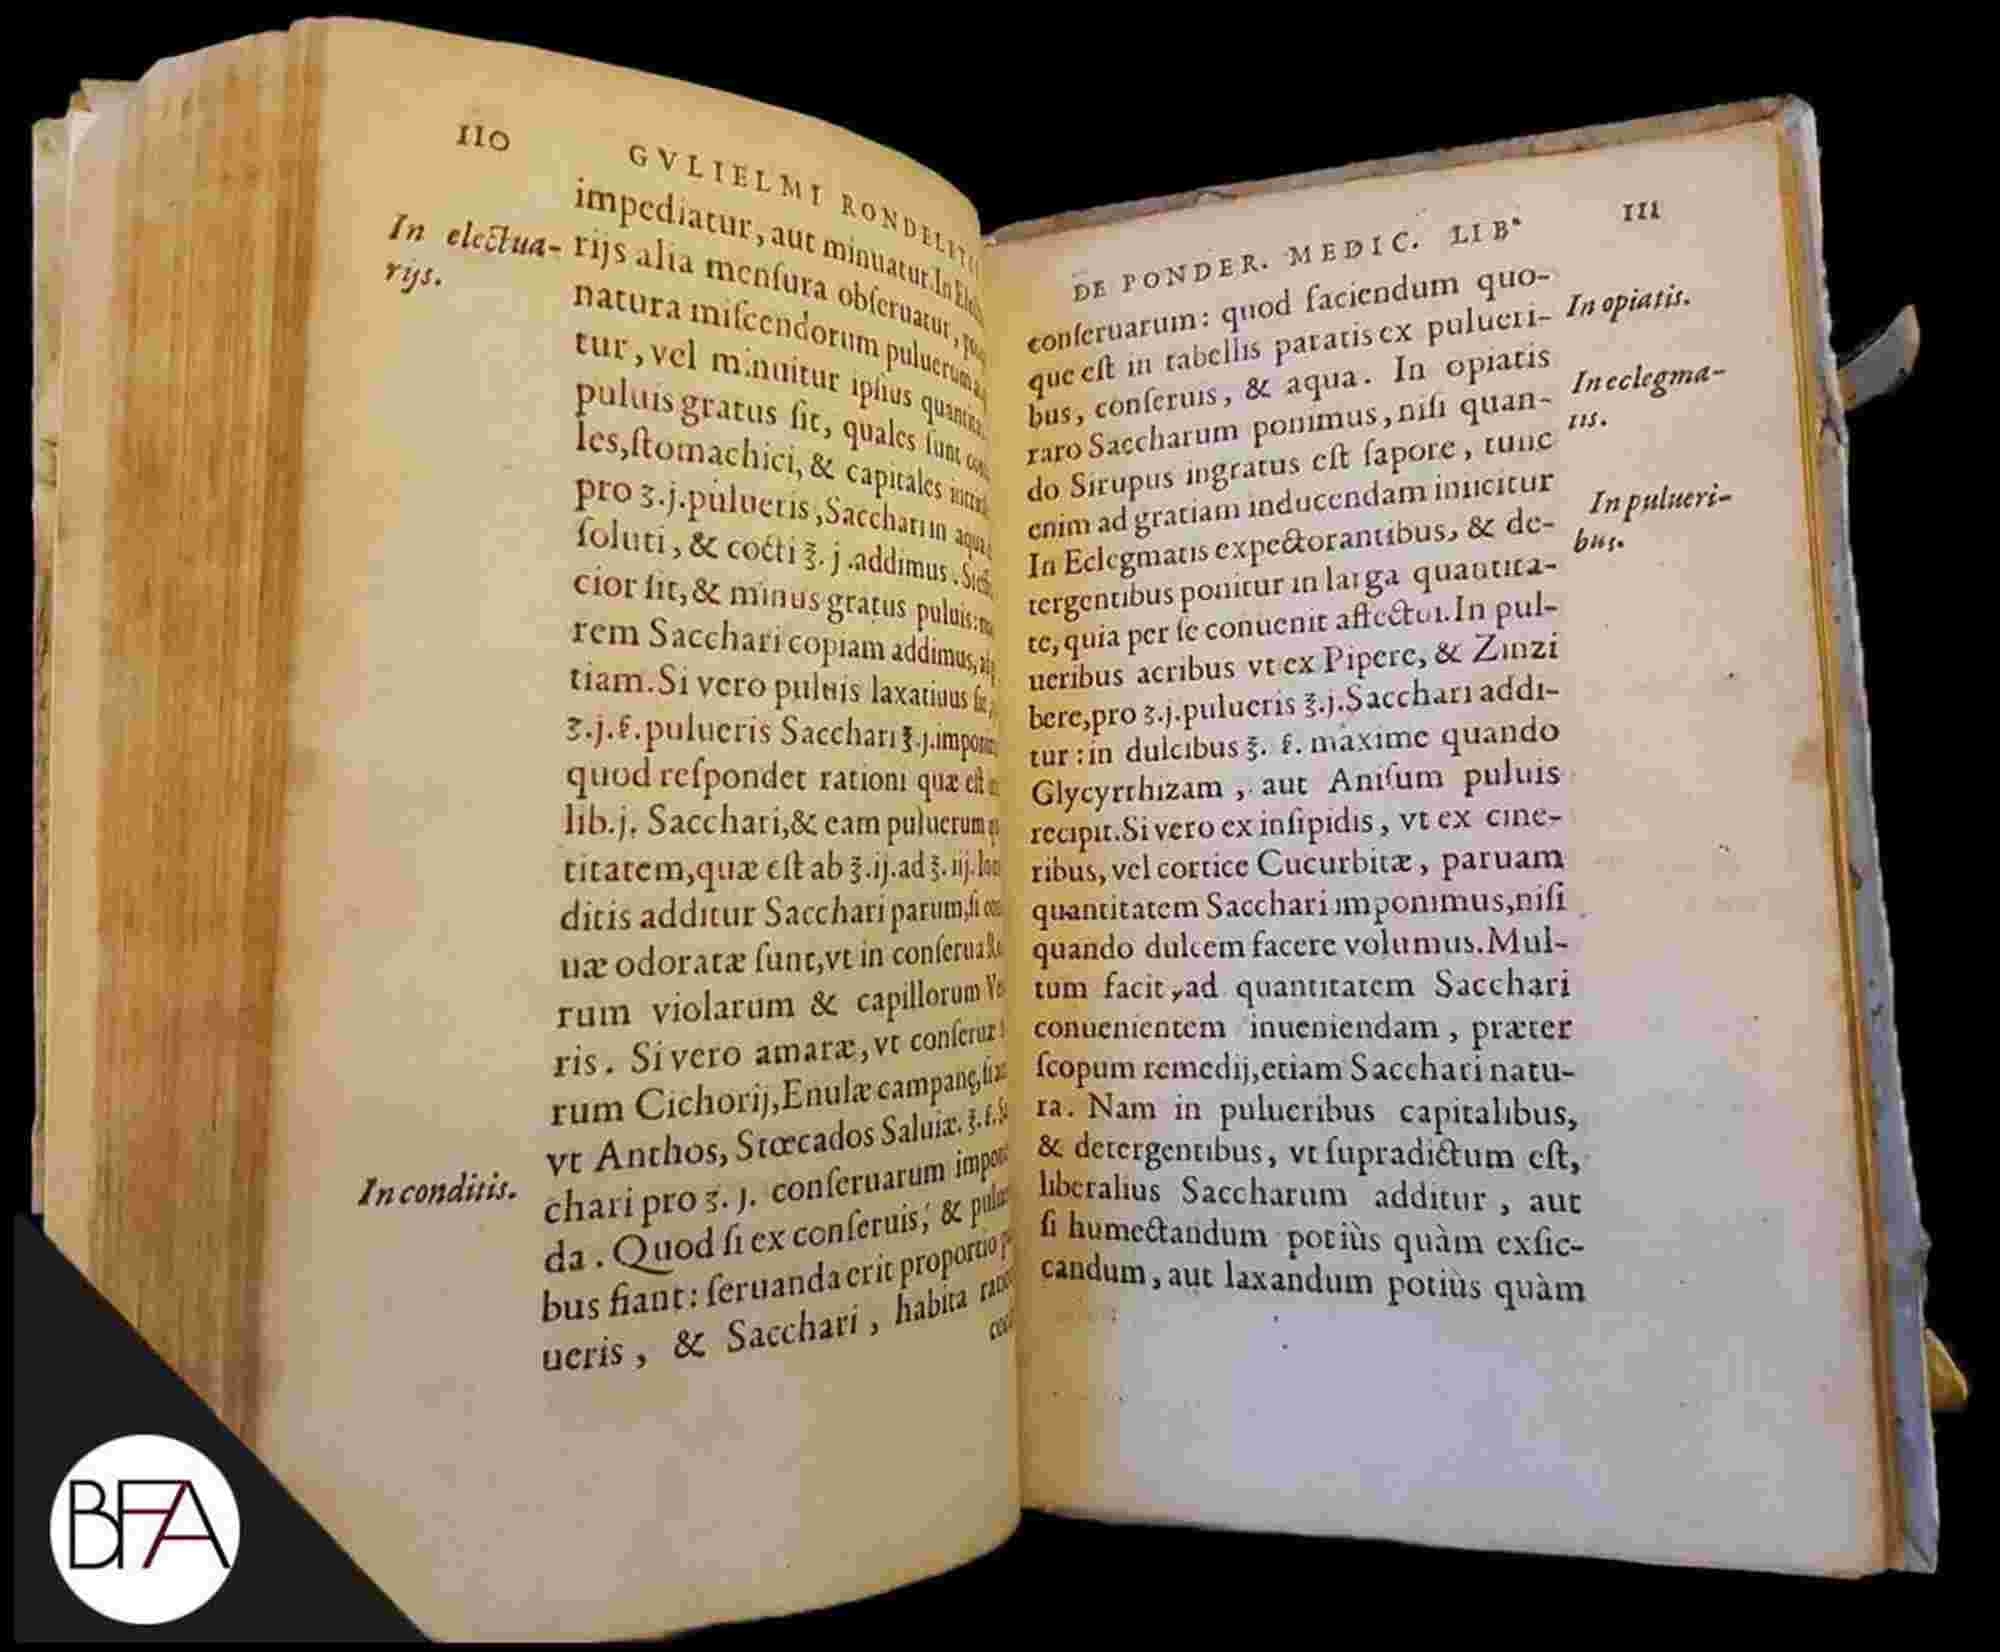 110
GVLIELMI RONDELITII
In electua-
rijs.
impediatur, aut minuatur. In
rijs alia mensura obseruatur,
natura miscendorum puluerum
tur, vel minuitur ipsius
puluis gratus sit, quales sunt
les, stomachici, & capitales
pro ʒ.j. pulueris, Sacchari in aqua
soluti, & cocti ℥.j. addimus.
cior sit, & minus gratus puluis:
rem Sacchari copiam addimus,
tiam. Si vero puluis laxatiuus
ʒ.j.ß. pulueris Sacchari ℥.j.
quod respondet rationi quæ est
lib.j. Sacchari, & eam puluerum
titatem, quæ est ab ℥.ij. ad ℥.iij.
ditis additur Sacchari parum, si
uæ odoratæ sunt, vt in conserua
rum violarum & capillorum
ris. Si vero amaræ, vt conseruæ
rum Cichorij, Enulæ campanę,
vt Anthos, Stœcados Saluiæ. ℥.ß.
In conditis.
chari pro ʒ.j. conseruarum
da. Quod si ex conseruis, &
bus fiant: seruanda erit proportio
ueris, & Sacchari, habita
DE PONDER. MEDIC. LIB.
111
conseruarum: quod faciendum quo-
que est in tabellis paratis ex pulueri-
bus, conseruis, & aqua. In opiatis
raro Saccharum ponimus, nisi quan-
do Sirupus ingratus est sapore, tunc
enim ad gratiam inducendam iniicitur
In Eclegmatis expectorantibus, & de-
tergentibus ponitur in larga quantita-
te, quia per se conuenit affectui. In pul-
ueribus acribus vt ex Pipere, & Zinzi
bere, pro ʒ.j. pulueris ℥.j. Sacchari addi-
tur: in dulcibus ℥.ß. maxime quando
Glycyrrhizam, aut Anisum puluis
recipit. Si vero ex insipidis, vt ex cine-
ribus, vel cortice Cucurbitæ, paruam
quantitatem Sacchari imponimus, nisi
quando dulcem facere volumus. Mul-
tum facit, ad quantitatem Sacchari
conuenientem inueniendam, præter
scopum remedij, etiam Sacchari natu-
ra. Nam in pulueribus capitalibus,
& detergentibus, vt supradictum est,
liberalius Saccharum additur, aut
si humectandum potiùs quàm exsic-
candum, aut laxandum potiùs quàm
In opiatis.
In eclegma-
tis.
In pulueri-
bus.
BFA